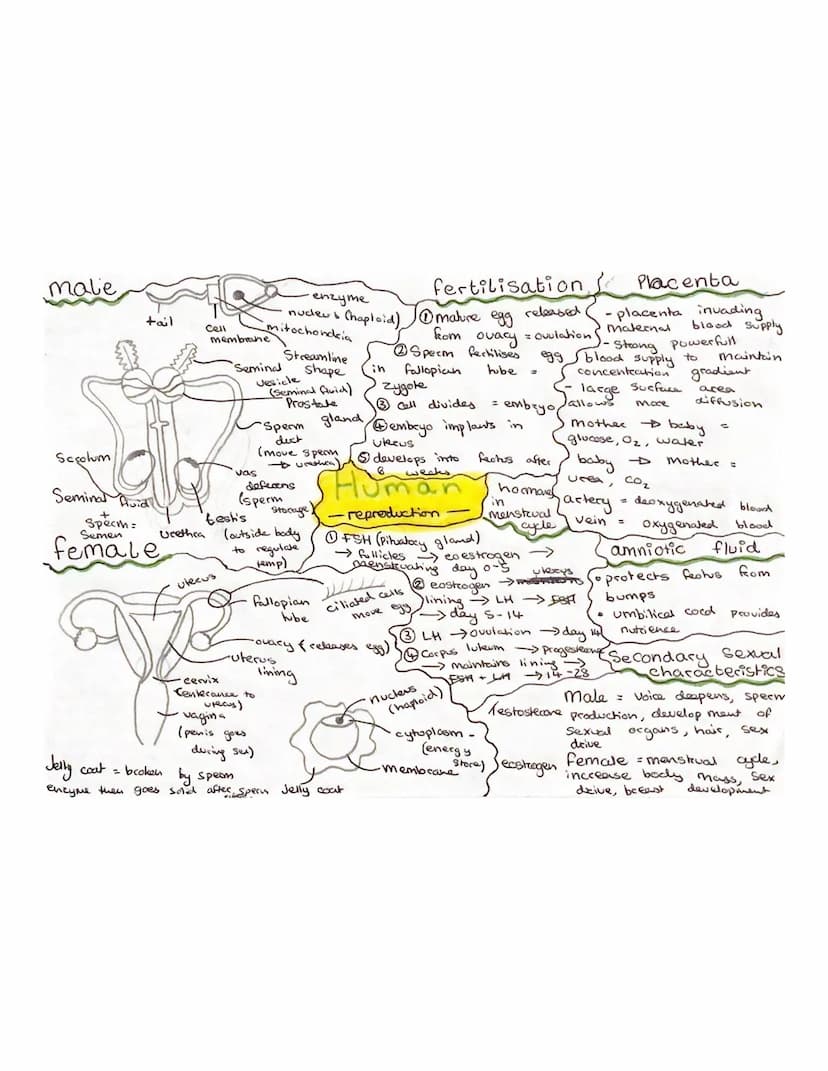 male
enzyme
nucleus (haploid)
mitochondria
cell
membrane
tail
Streamline
shape
Seminal
vesicle
(seminal fluid)
Prostate
gland
sperm
duct
(move sperm
→ urethra)
vas
deferens
(sperm
storage)
Scrotum
Seminal fluid
+
Sperm =
Semen
urethra
testis
(outside body
to regulate
temp)
fertilisation
① mature egg released
from ovary = ovulation
② Sperm fertilises egg
in fallopian tube =
zygote
③ cell divides = embryo
④ embryo implants in
uterus
⑤ develops into foetus after
8 weeks
Placenta
- placenta invading
maternal blood supply
- Strong powerfull
blood supply to maintain
concentration gradient
- large surface area
allows more diffusion
Mother → baby =
glucose, O₂, water
baby → Mother =
urea, CO₂
artery = deoxygenated blood
vein = oxygenated blood
Human
- reproduction -
hormones
in
menstrual
cycle
① FSH (pituitary gland)
→ follicles → eoestrogen →
menstruating day 0-5
② eostrogen → uterus
lining → LH → FSH
→ day 5-14
③ LH → ovulation → day 14
④ Corpus luteum → progesterone
→ maintains lining →
FSH + LH → 14-28
amniotic fluid
• protects foetus from
bumps
• umbilical cord provides
nutrience
Secondary Sexual
characteristics
Male = voice deepens, sperm
Testosterone production, development of
sexual organs, hair, sex
drive
eostrogen Female = menstrual cycle,
increase body mass, sex
drive, breast development
female
uterus
fallopian
tube
ciliated cells
move egg
ovary (releases egg)
uterus
lining
cervix
(enterance to
uterus)
vagina
(penis goes
during sex)
nucleus
(haploid)
cytoplasm -
(energy
store)
membrane
Jelly coat
Jelly coat = broken by sperm
enzyme then goes solid after sperm